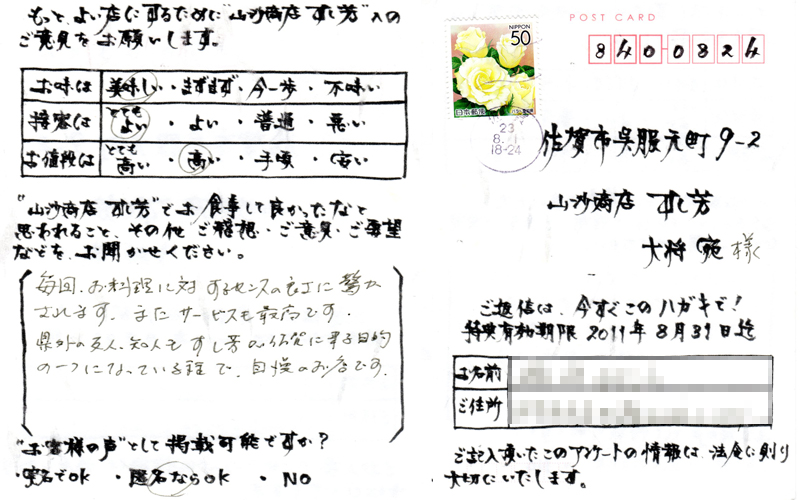 もっと、よい店にするために"山沙商店 すし芳"への
ご意見をお願いします。
お味は 美味しい・まずまず・今一歩・不味い
接客は とてもよい・よい・普通・悪い
お値段は とても高い・高い・手頃・安い
"山沙商店 すし芳"でお食事して良かったなと
思われること、その他ご感想・ご意見・ご要望
などを、お聞かせください。
毎回、お料理に対するセンスの良さに驚か
されます。またサービスも最高です。
県外の友人、知人もすし芳が佐賀に来る目的
の一つになっている程で、自慢のお店です。
"お客様の声"として掲載可能ですか?
・実名でOK ・匿名ならOK ・NO
POST CARD
NIPPON
50
日本郵便
840-0824
23
8.
18-24
佐賀市呉服元町9-2
山沙商店 すし芳
大将 宛 様
ご返信は、今すぐこのハガキで!
特典有効期限 2011年8月31日迄
お名前
ご住所
ご記入頂いたこのアンケートの情報は、法令に則り
大切にいたします。